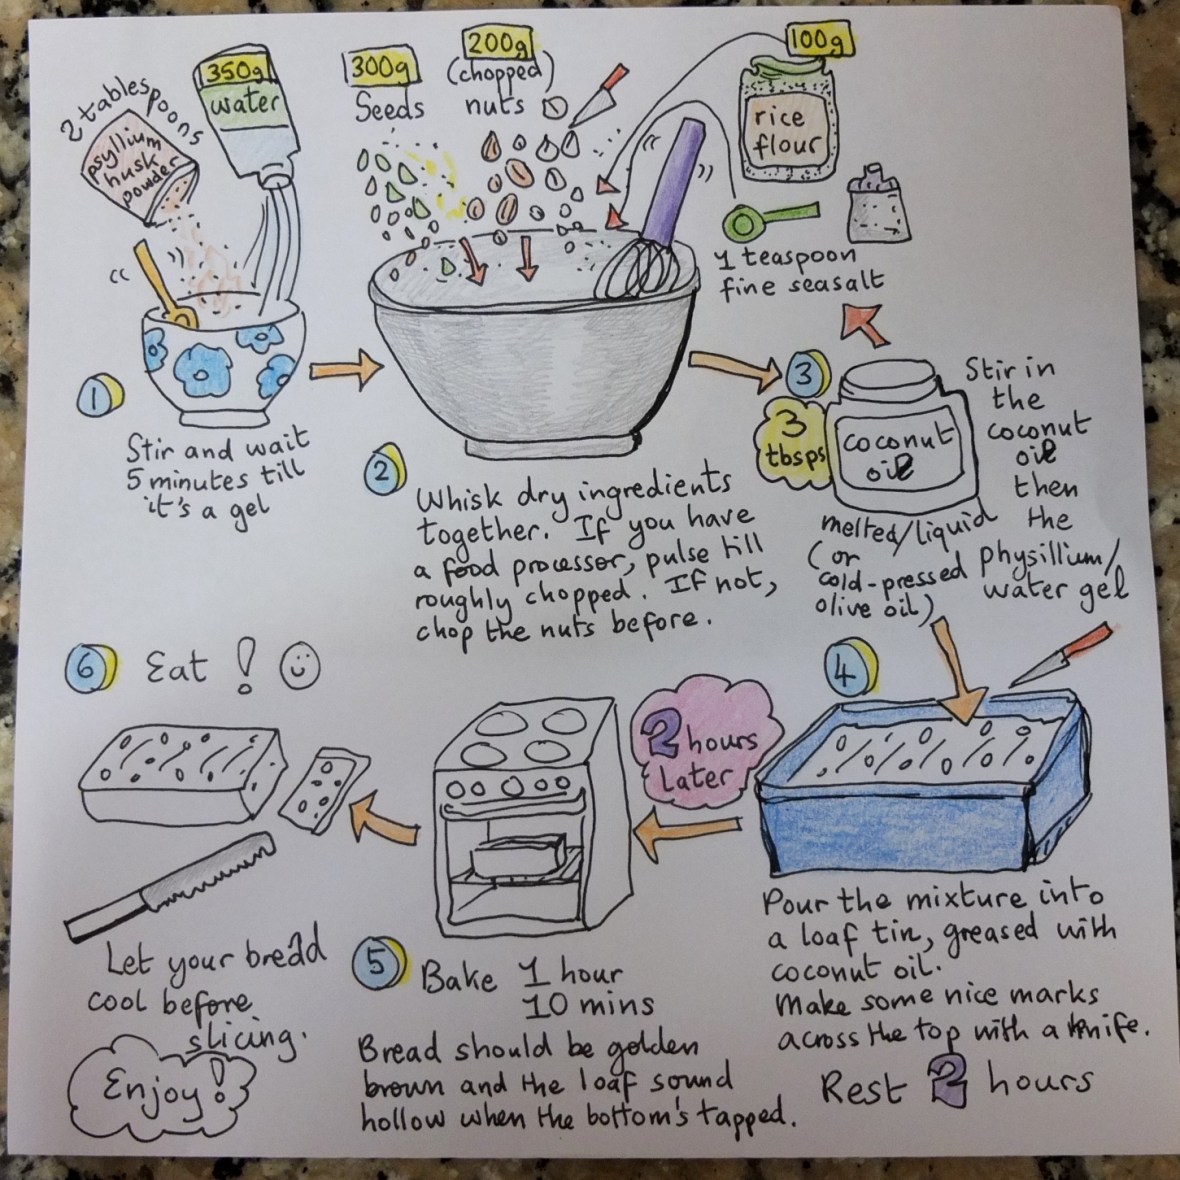 2 tablespoons
psyllium
husk
powder
350g
water
1
Stir and wait
5 minutes till
it's a gel
300g
Seeds
200g
(chopped)
nuts
100g
rice
flour
1 teaspoon
fine seasalt
2
Whisk dry ingredients
together. If you have
a food processor, pulse till
roughly chopped. If not,
chop the nuts before.
3
3
tbsps
coconut
oil
melted/liquid
(or
cold-pressed
olive oil)
Stir in
the
coconut
oil
then
the
physillium/
water gel
4
Pour the mixture into
a loaf tin, greased with
coconut oil.
Make some nice marks
across the top with a knife.
Rest 2 hours
2 hours
Later
5
Bake 1 hour
10 mins
Bread should be golden
brown and the loaf sound
hollow when the bottom's tapped.
6 Eat!
Let your bread
cool before
slicing.
Enjoy!